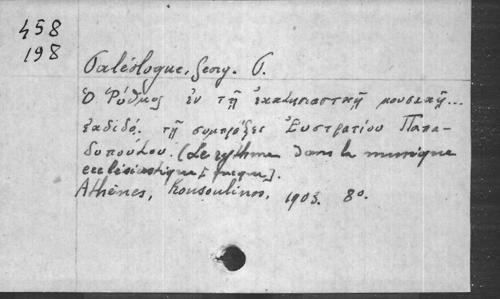 458
198
Paléologue, Georg. P.
Ὁ Ῥυθμὸς ἐν τῇ ἐκκλησιαστικῇ μουσικῇ...
ἐκδιδό. τῇ συμπράξει Εὐστρατίου Παπα-
δοπούλου. (Le rythme dans la musique
ecclésiastique grecque).
Athènes, Kousoulinos, 1903. 8o.